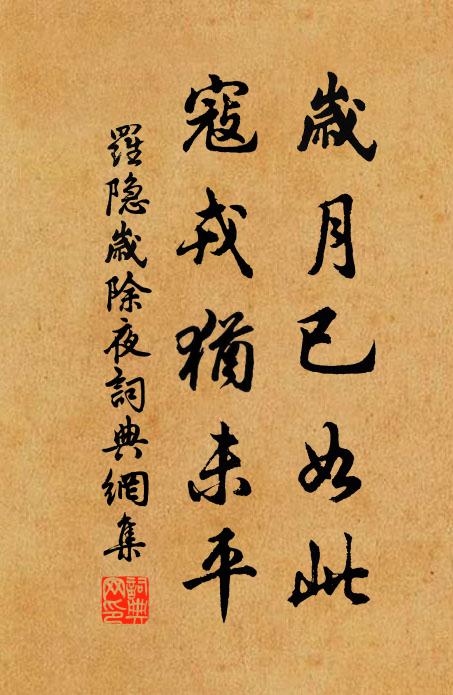 歲月已如此
寇戎猶未平
羅隐歲除夜詞典網集
詞典网印